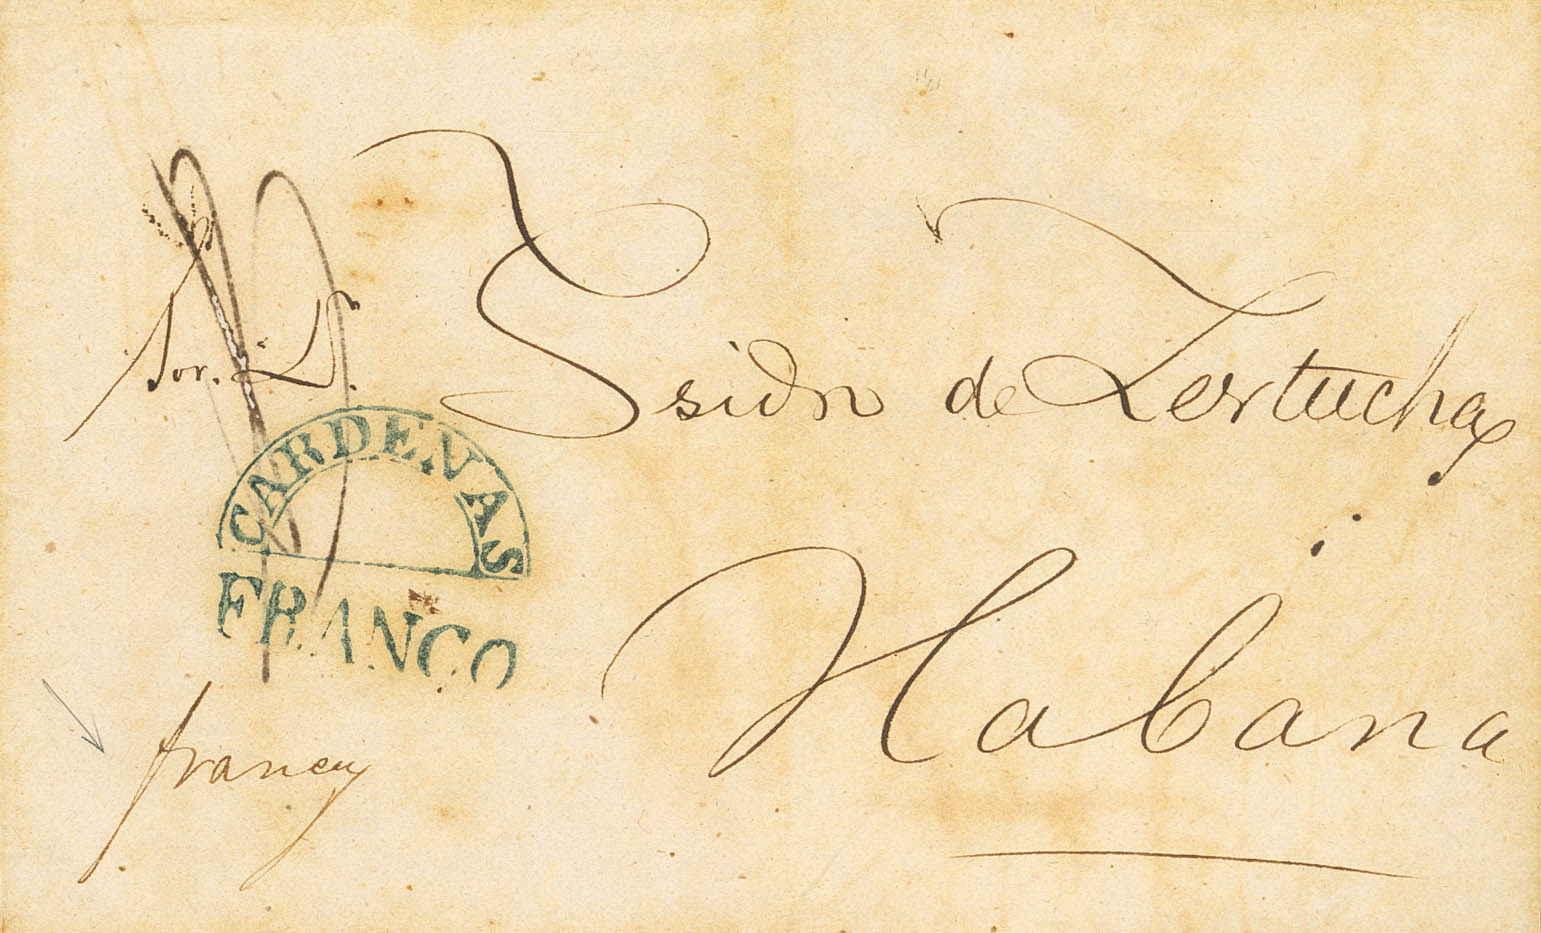 Sor. D. Isidro de Lertucha
Habana
CARDENAS
FRANCO